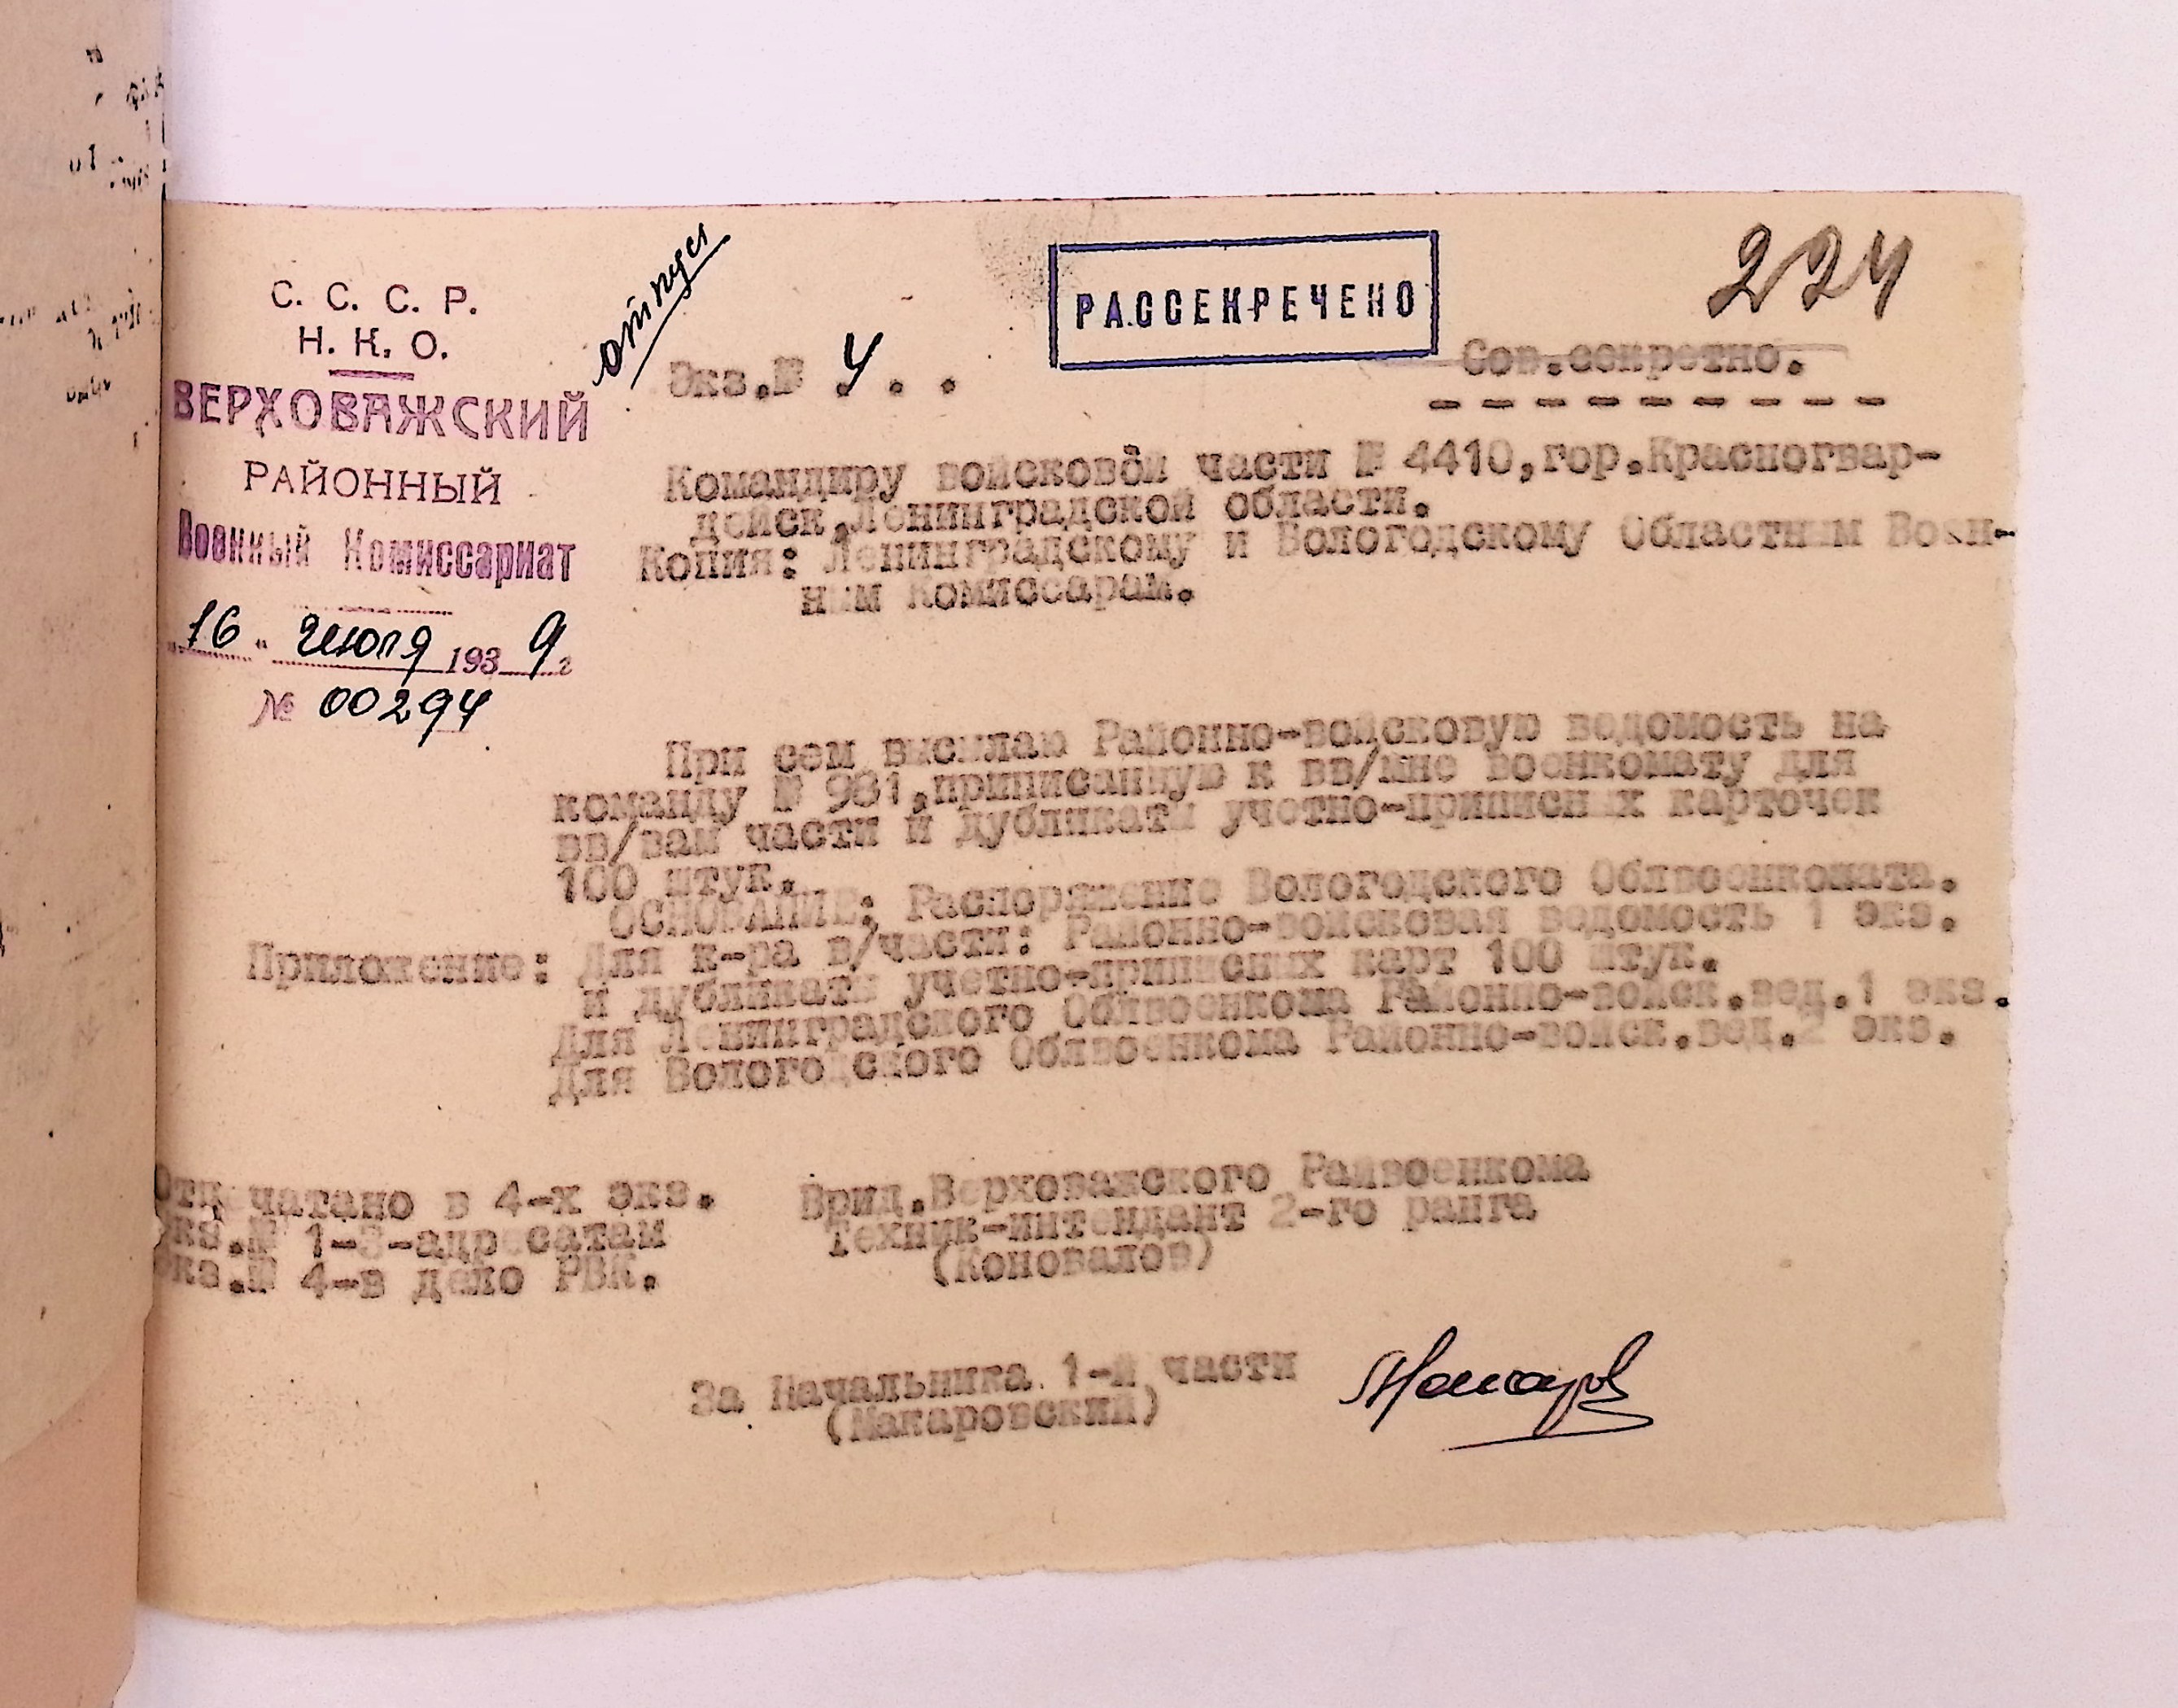 С. С. С. Р.
Н. К. О.
ВЕРХОВАЖСКИЙ
РАЙОННЫЙ
Военный Комиссариат
16 " Июля 1939 г
№ 00294
отпуск
РАССЕКРЕЧЕНО
224
Экз.№ 4. .
Сов.секретно.
Командиру войсковой части № 4410,гор.Красногвар-
дейск,Ленинградской области.
Копия: Ленинградскому и Вологодскому Областным Воен-
ным Комиссарам.
При сем высылаю Районно-войсковую ведомость на
команду № 981,приписанную к вв/мне военкомату для
вв/вам части и дубликаты учетно-приписных карточек
100 штук.
ОСНОВАНИЕ: Распоряжение Вологодского Облвоенкомата.
Приложение: Для к-ра в/части: Районно-войсковая ведомость 1 экз.
и дубликаты учетно-приписных карт 100 штук.
Для Ленинградского Облвоенкома Районно-войск.вед.1 экз.
Для Вологодского Облвоенкома Районно-войск.вед.2 экз.
Отпечатано в 4-х экз.
Экз.№ 1-3-адресатам
Экз.№ 4-в дело РВК.
Врид.Верховажского Райвоенкома
Техник-интендант 2-го ранга
(Коновалов)
За Начальника 1-й части
(Макаровский)